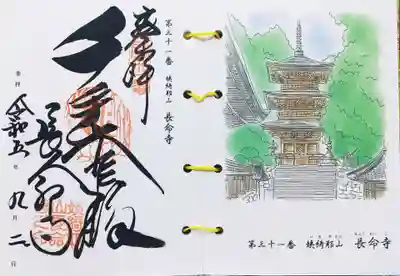 第三十一番 姨綺耶山 長命寺
奉拝
千手大悲殿
長命寺
令和五年九月二日
第三十一番 姨綺耶山 長命寺